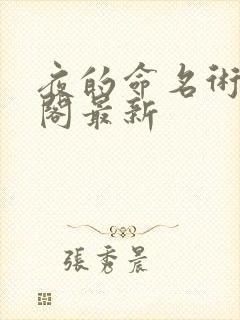 夜的命名術
閣最新
張秀晨